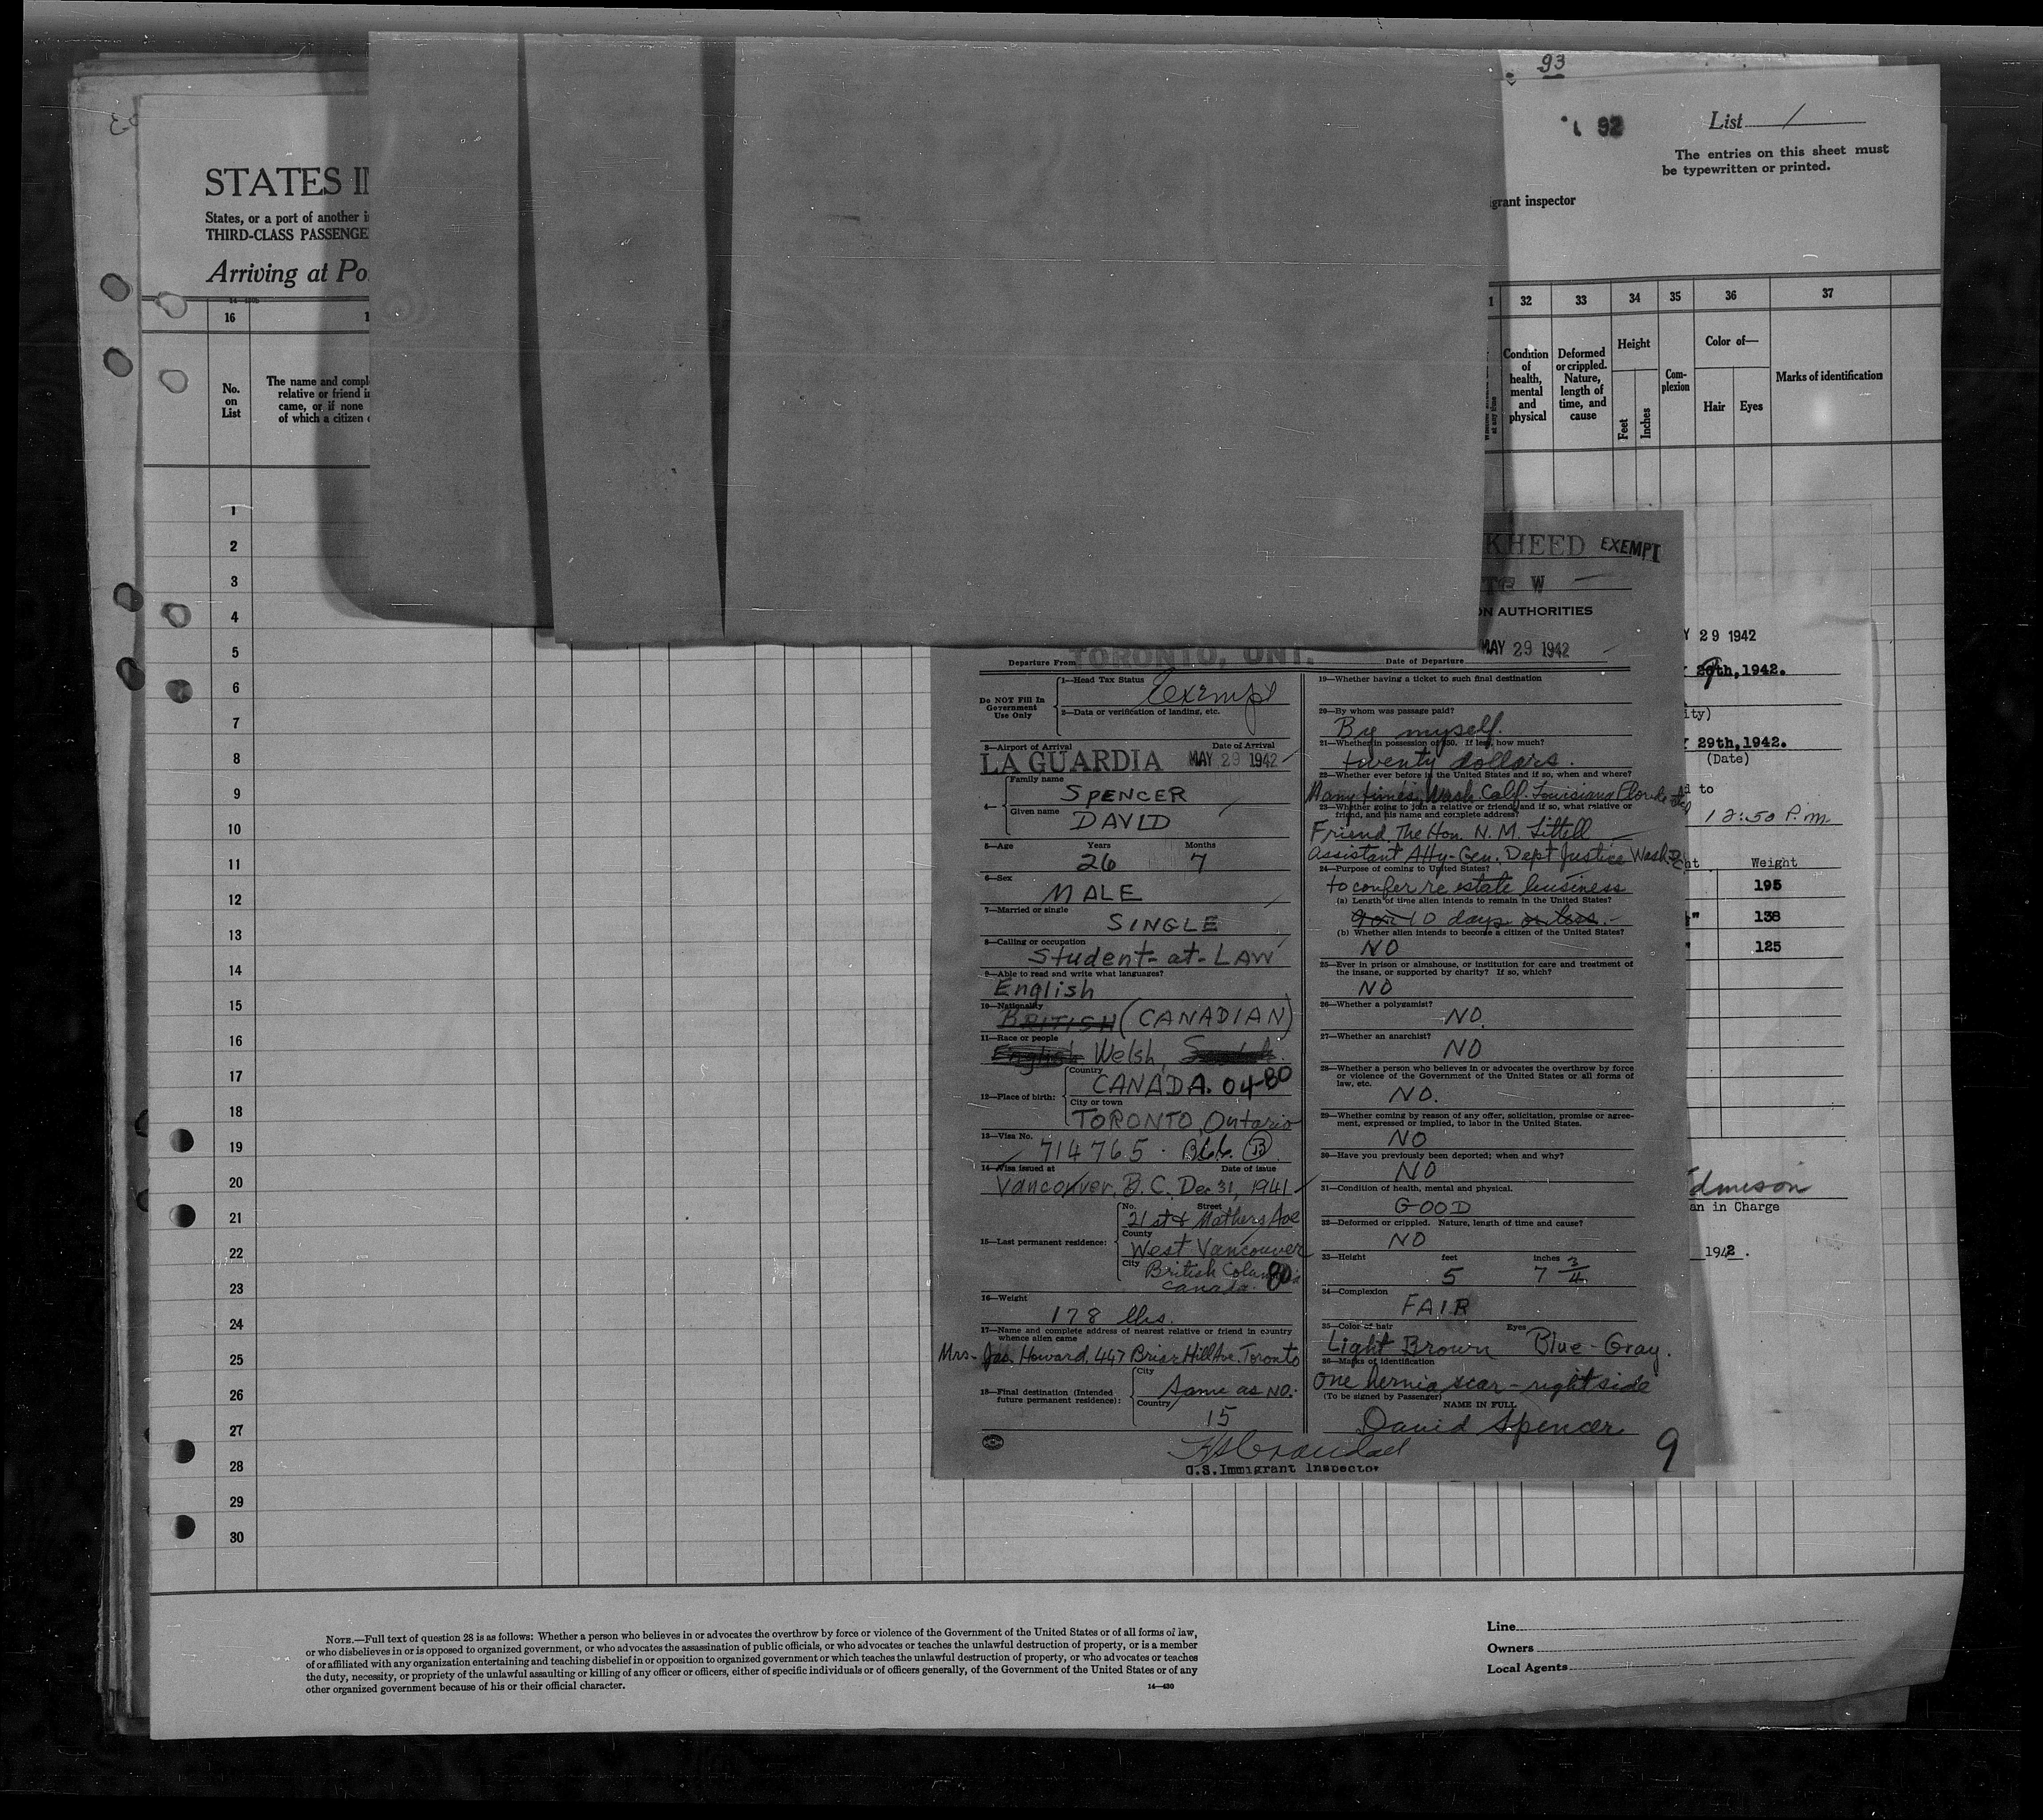 93
92
List 1
The entries on this sheet must
be typewritten or printed.
STATES
States, or a port of another
THIRD-CLASS PASSENGE
Arriving at Po
grant inspector
16
No.
on
List
The name and compl
relative or friend
came, or if none
of which a citizen
32
33
34
35
36
37
Condition
of
health,
mental
and
physical
Deformed
or crippled.
Nature,
length of
time, and
cause
Height
Feet
Inches
Com-
plexion
Color of—
Hair
Eyes
Marks of identification
1
2
3
4
5
6
7
8
9
10
11
12
13
14
15
16
17
18
19
20
21
22
23
24
25
26
27
28
29
30
KHEED EXEMPT
W
AUTHORITIES
Departure From TORONTO, ONT.
Date of Departure MAY 29 1942
Do NOT Fill In
Government
Use Only
1—Head Tax Status
Exempt
2—Data or verification of landing, etc.
3—Airport of Arrival
Date of Arrival
LA GUARDIA MAY 29 1942
4—
Family name
SPENCER
Given name
DAVID
5—Age
Years
Months
26 7
6—Sex
MALE
7—Married or single
SINGLE
8—Calling or occupation
Student-at-LAW
9—Able to read and write what languages?
English
10—Nationality
BRITISH (CANADIAN)
11—Race or people
English Welsh
12—Place of birth:
Country
CANADA. 04-80
City or town
TORONTO, Ontario
13—Visa No.
714765
14—Visa issued at
Date of issue
Vancouver, B.C. Dec 31, 1941
15—Last permanent residence:
No.
Street
21st & Mathers Ave
County
West Vancouver
City
British Columbia 80
Canada.
16—Weight
178 lbs.
17—Name and complete address of nearest relative or friend in country
whence alien came
Mrs. Jas. Howard, 447 Briar Hill Ave. Toronto
18—Final destination (Intended
future permanent residence):
City
Same as No.
Country
15
19—Whether having a ticket to such final destination
20—By whom was passage paid?
By myself.
21—Whether in possession of $50. If less, how much?
twenty dollars.
22—Whether ever before in the United States and if so, when and where?
Many times, Wash. Calif. Louisiana Florida
23—Whether going to join a relative or friend and if so, what relative or
friend, and his name and complete address?
Friend. The Hon. N. M. Littell
Assistant Atty-Gen. Dept Justice Wash.
24—Purpose of coming to United States?
to confer re estate business
(a) Length of time alien intends to remain in the United States?
9 or 10 days or less.
(b) Whether alien intends to become a citizen of the United States?
NO
25—Ever in prison or almshouse, or institution for care and treatment of
the insane, or supported by charity? If so, which?
NO
26—Whether a polygamist?
NO.
27—Whether an anarchist?
NO
28—Whether a person who believes in or advocates the overthrow by force
or violence of the Government of the United States or all forms of
law, etc.
NO.
29—Whether coming by reason of any offer, solicitation, promise or agree-
ment, expressed or implied, to labor in the United States.
NO
30—Have you previously been deported; when and why?
NO
31—Condition of health, mental and physical.
GOOD
32—Deformed or crippled. Nature, length of time and cause?
NO
33—Height
feet
inches
5 7 3/4
34—Complexion
FAIR
35—Color of hair
Eyes
Light Brown Blue-Gray.
36—Marks of identification
One hernia scar - right side
(To be signed by Passenger)
NAME IN FULL
David Spencer
9
U.S. Immigrant Inspector
29 1942
th, 1942.
ity)
29th, 1942.
(Date)
d to
12:50 P.m.
Weight
195
138
125
dmison
an in Charge
1942.
NOTE.—Full text of question 28 is as follows: Whether a person who believes in or advocates the overthrow by force or violence of the Government of the United States or of all forms of law,
or who disbelieves in or is opposed to organized government, or who advocates the assassination of public officials, or who advocates or teaches the unlawful destruction of property, or is a member
of or affiliated with any organization entertaining and teaching disbelief in or opposition to organized government or which teaches the unlawful destruction of property, or who advocates or teaches
the duty, necessity, or propriety of the unlawful assaulting or killing of any officer or officers, either of specific individuals or of officers generally, of the Government of the United States or of any
other organized government because of his or their official character.
14—430
Line
Owners
Local Agents